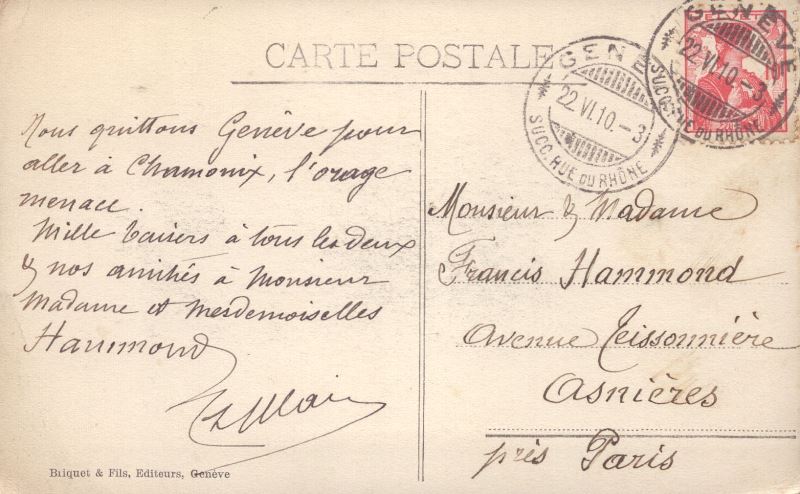 CARTE POSTALE
GENÈVE
22.VI.10.-3
SUCC. RUE DU RHÔNE
GENÈVE
22.VI.10.-3
SUCC. RUE DU RHÔNE
Nous quittons Genève pour
aller à Chamonix, l'orage
menace.
Mille baisers à tous les deux
& nos amitiés à Monsieur
Madame et Mesdemoiselles
Hammond
Monsieur & Madame
Francis Hammond
Avenue Teissonnière
Asnières
près Paris
Briquet & Fils, Editeurs, Genève